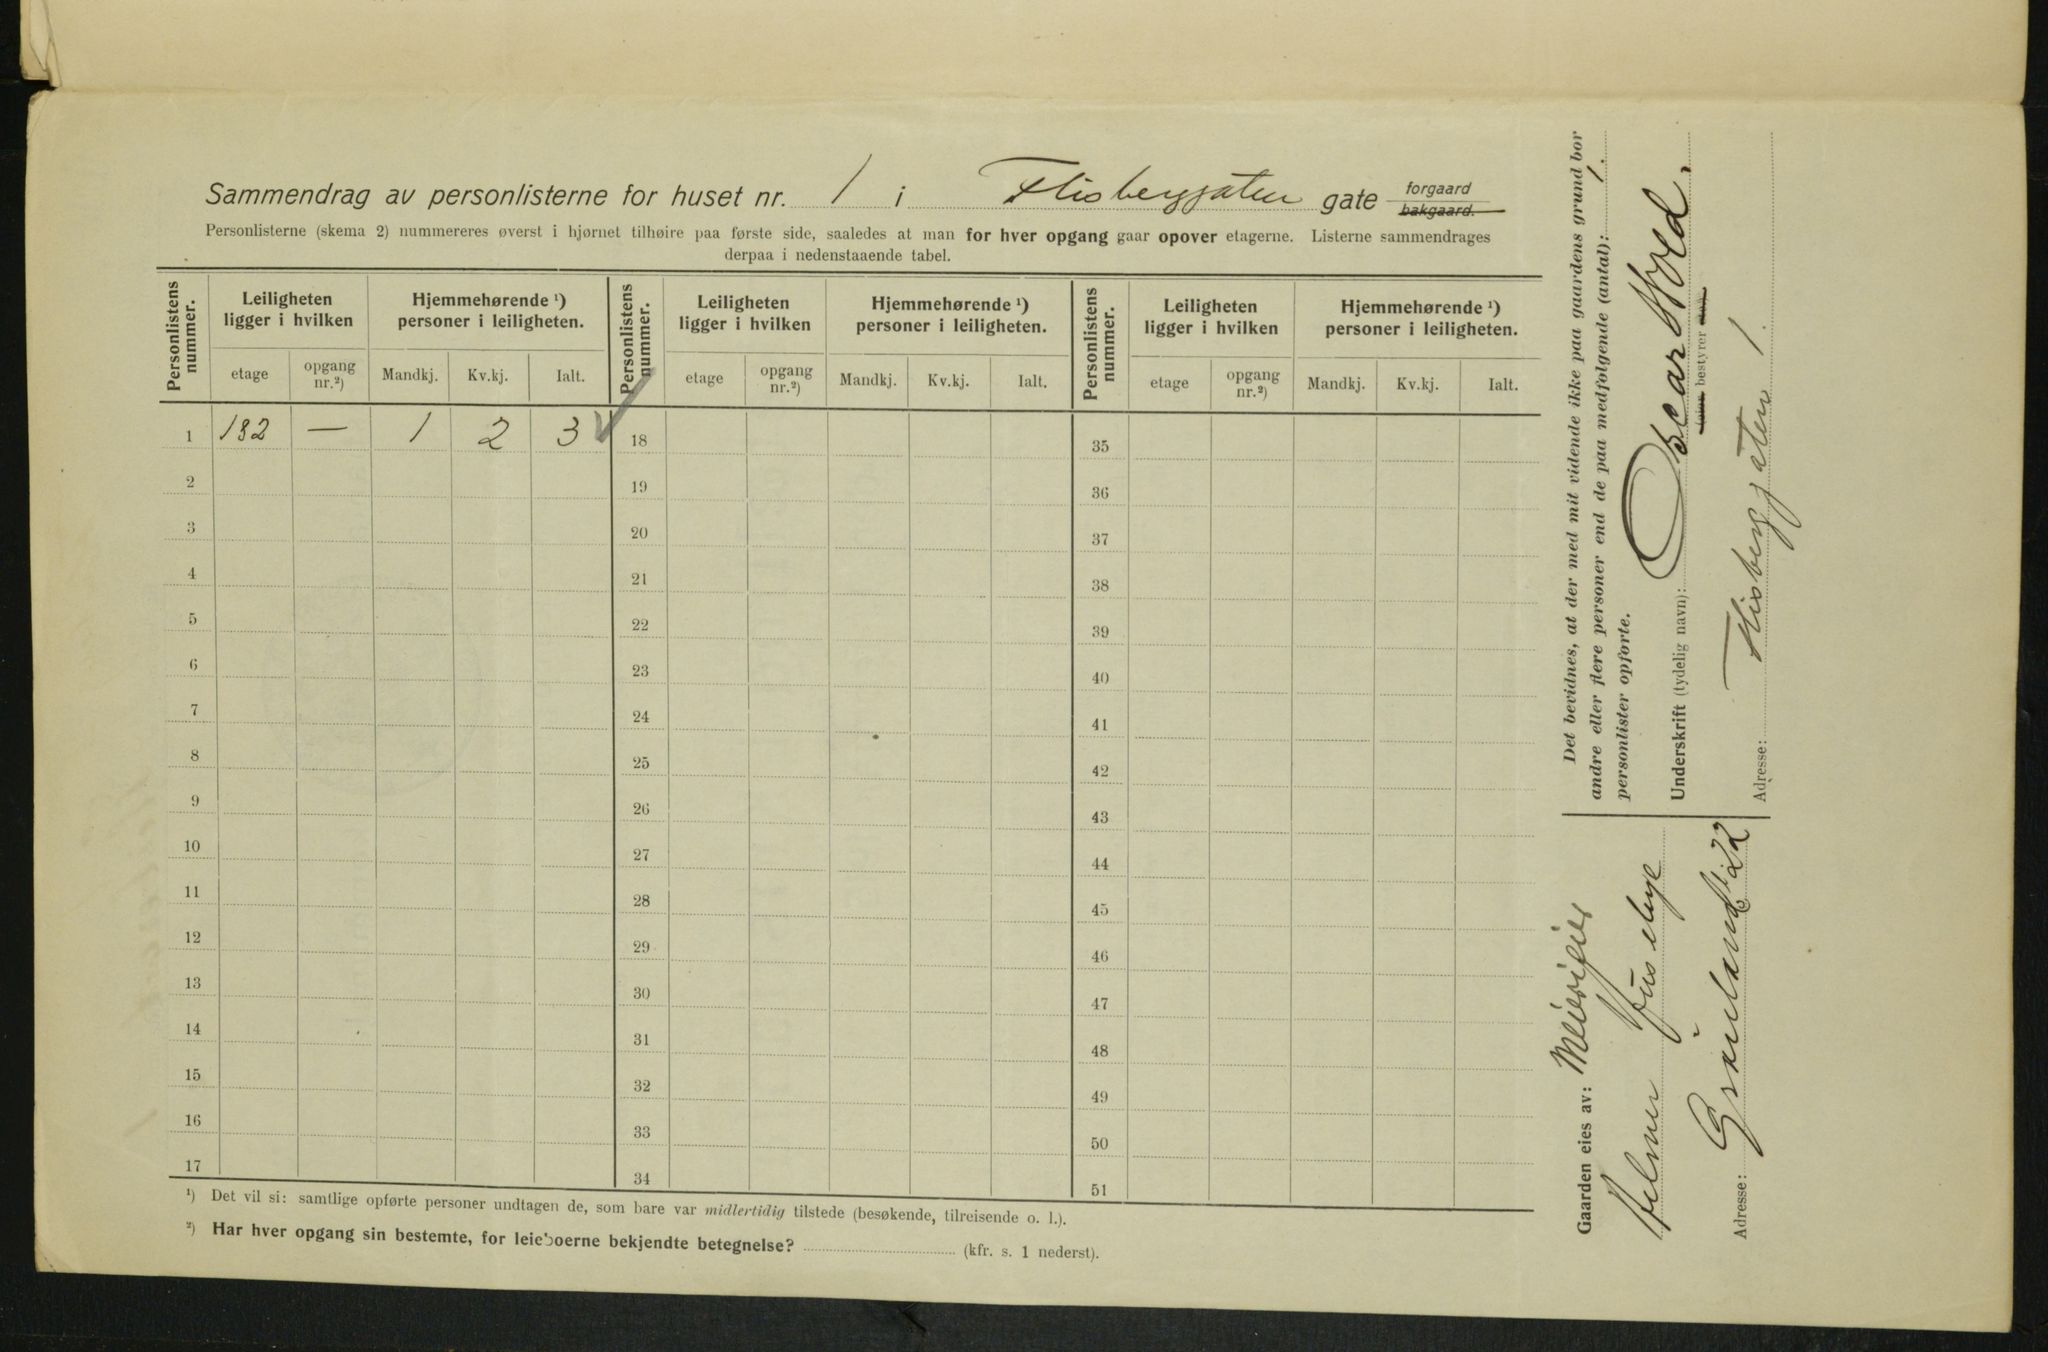 Sammendrag av personlisterne for huset nr. 1 i Flisberggaten gate forgaard bakgaard.
Personlisterne (skema 2) nummereres øverst i hjørnet tilhøire paa første side, saaledes at man for hver opgang gaar opover etagerne. Listerne sammendrages
derpaa i nedenstaaende tabel.
Personlistens nummer. Leiligheten ligger i hvilken Hjemmehørende ¹) personer i leiligheten. Personlistens nummer. Leiligheten ligger i hvilken Hjemmehørende ¹) personer i leiligheten. Personlistens nummer. Leiligheten ligger i hvilken Hjemmehørende ¹) personer i leiligheten.
etage opgang nr.²) Mandkj. Kv.kj. Ialt. etage opgang nr.²) Mandkj. Kv.kj. Ialt. etage opgang nr.²) Mandkj. Kv.kj. Ialt.
1 1&2 — 1 2 3 18 35
2 19 36
3 20 37
4 21 38
5 22 39
6 23 40
7 24 41
8 25 42
9 26 43
10 27 44
11 28 45
12 29 46
13 30 47
14 31 48
15 32 49
16 33 50
17 34 51
¹) Det vil si: samtlige opførte personer undtagen de, som bare var midlertidig tilstede (besøkende, tilreisende o. l.).
²) Har hver opgang sin bestemte, for leieboerne bekjendte betegnelse? (kfr. s. 1 nederst).
Det bevidnes, at der med mit vidende ikke paa gaardens grund bor
andre eller flere personer end de paa medfølgende (antal): 1.
personlister opførte.
Underskrift (tydelig navn): Oscar Wold.
eier bestyrer
Adresse: Flisberggaten 1.
Gaarden eies av: Meierieier
Helmer Huseby
Adresse: Grønland 22